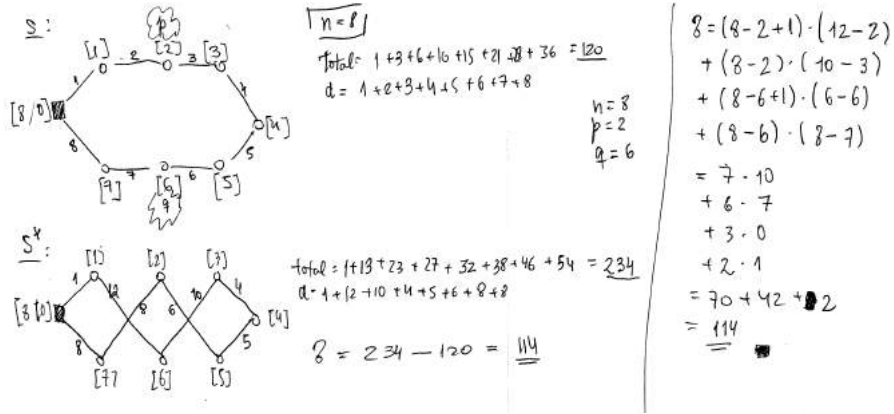 S:
p
[1] 2 [2] 3 [3]
1
4
[8/0]
[4]
8
5
[7] 7 [6] 6 [5]
q
n=8
Total= 1+3+6+10+15+21+28+36 = 120
d= 1+2+3+4+5+6+7+8
n=8
p=2
q=6
S*:
[1] [2] [3]
1 12 8 6 10 4
[8/0]
[4]
8 5
[7] [6] [5]
total = 1+13+23+27+32+38+46+54 = 234
d= 1+12+10+4+5+6+8+8
= 234 - 120 = 114
= (8-2+1)·(12-2)
+ (8-2)·(10-3)
+ (8-6+1)·(6-6)
+ (8-6)·(8-7)
= 7·10
+ 6·7
+ 3·0
+ 2·1
= 70+42+2
= 114